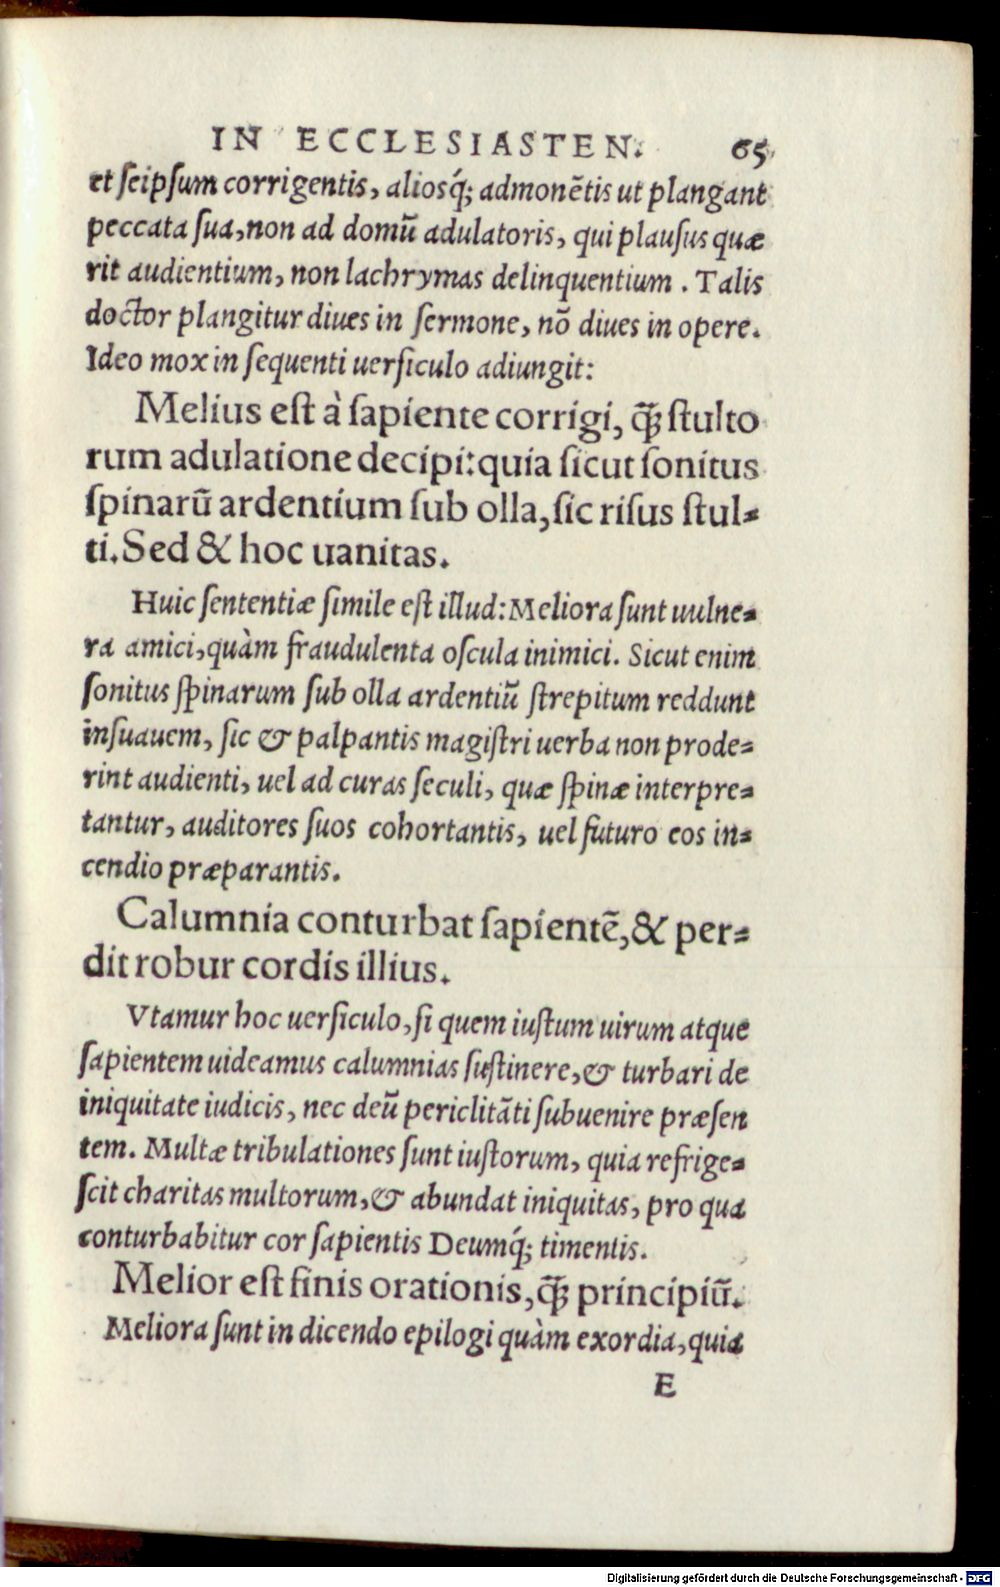 IN ECCLESIASTEN. 65
et seipsum corrigentis, aliosq́; admonẽtis ut plangant
peccata sua, non ad domũ adulatoris, qui plausus quæ
rit audientium, non lachrymas delinquentium. Talis
doctor plangitur diues in sermone, nõ diues in opere.
Ideo mox in sequenti uersiculo adiungit:
Melius est à sapiente corrigi, q̃ꝫ stulto
rum adulatione decipi: quia sicut sonitus
spinarũ ardentium sub olla, sic risus stul-
ti. Sed & hoc uanitas.
Huic sententiæ simile est illud: Meliora sunt uulne-
ra amici, quàm fraudulenta oscula inimici. Sicut enim
sonitus spinarum sub olla ardentiũ strepitum reddunt
insuauem, sic & palpantis magistri uerba non prode-
rint audienti, uel ad curas seculi, quæ spinæ interpre-
tantur, auditores suos cohortantis, uel futuro eos in-
cendio præparantis.
Calumnia conturbat sapientẽ, & per-
dit robur cordis illius.
Vtamur hoc uersiculo, si quem iustum uirum atque
sapientem uideamus calumnias sustinere, & turbari de
iniquitate iudicis, nec deũ periclitãti subuenire præsen
tem. Multæ tribulationes sunt iustorum, quia refrige-
scit charitas multorum, & abundat iniquitas, pro qua
conturbabitur cor sapientis Deumq́; timentis.
Melior est finis orationis, q̃ꝫ principiũ.
Meliora sunt in dicendo epilogi quàm exordia, quia
E
Digitalisierung gefördert durch die Deutsche Forschungsgemeinschaft - DFG